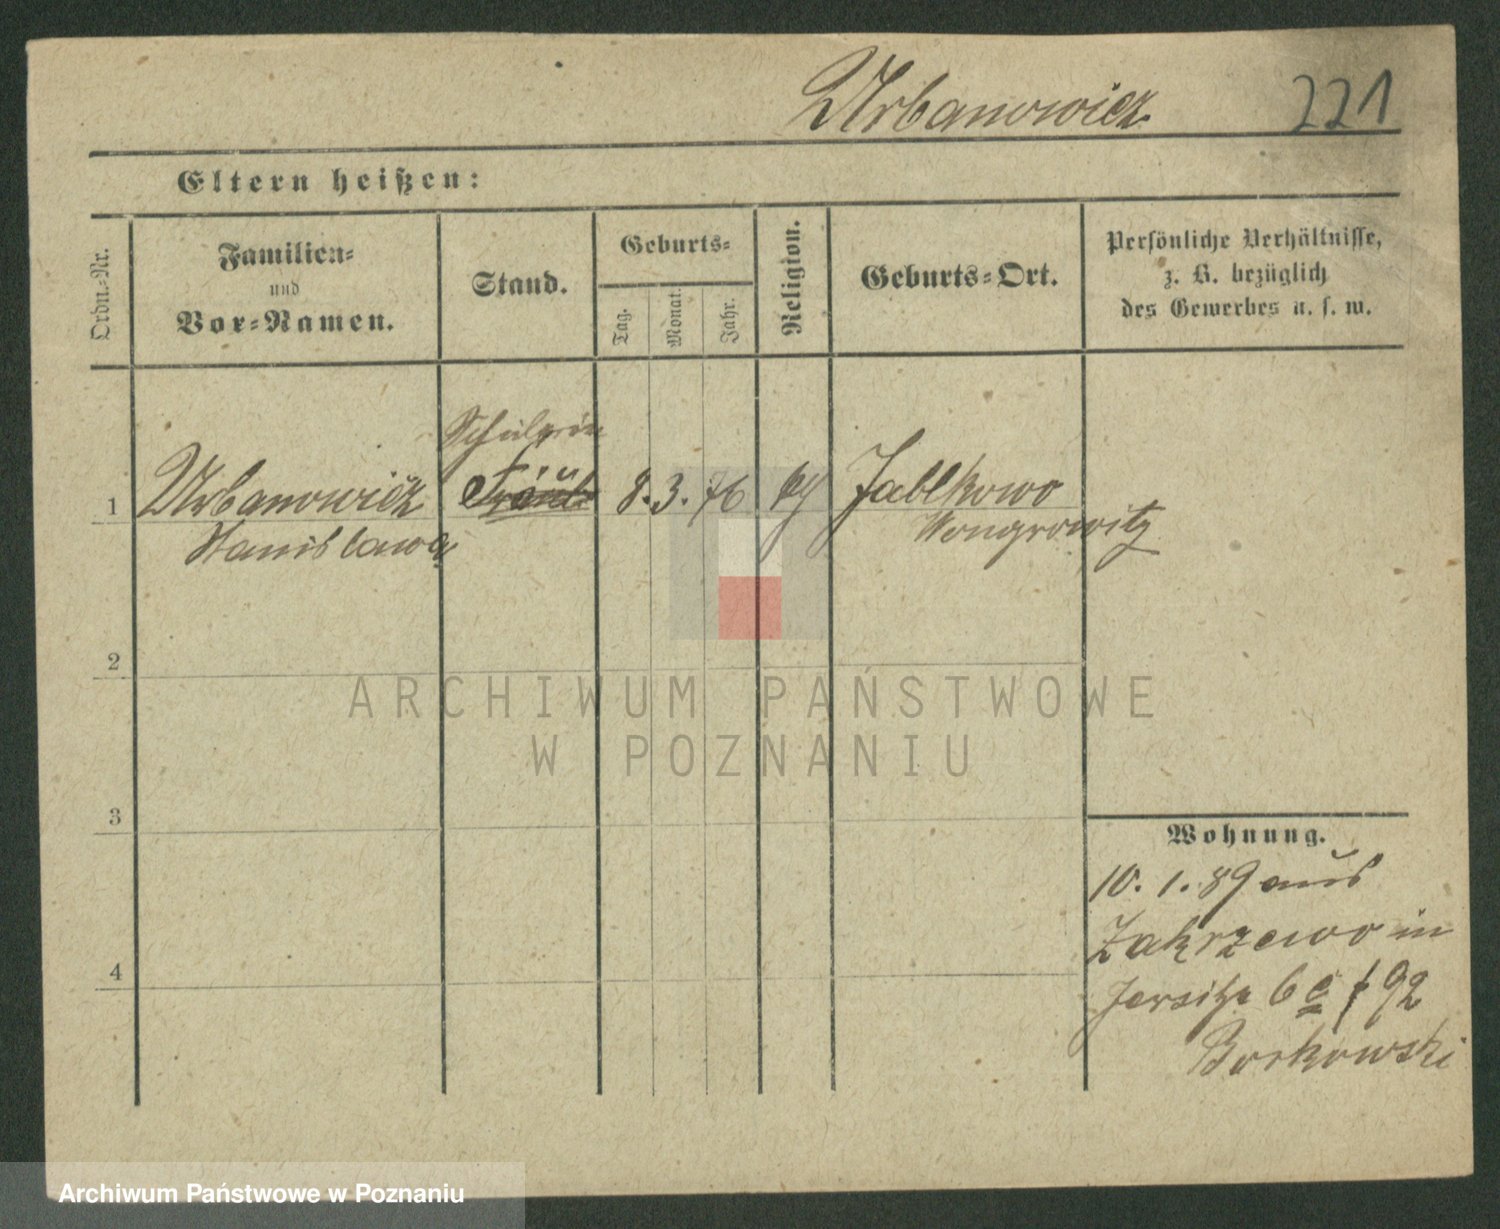 Urbanowicz 221
Eltern heißen:
Ordn.-Nr.
Familien-
und
Vor-Namen.
Stand.
Geburts-
Tag.
Monat.
Jahr.
Religion.
Geburts-Ort.
Persönliche Verhältnisse,
z. B. bezüglich
des Gewerbes u. s. w.
Schülerin
1 Urbanowicz 8. 3. 76 Jablkowo
Stanislawa Wongrowitz
2
3
4
Wohnung.
10. 1. 89 aus
Zakrzewo in
Jersitz 6 92
Borkowski
ARCHIWUM PAŃSTWOWE
W POZNANIU
Archiwum Państwowe w Poznaniu